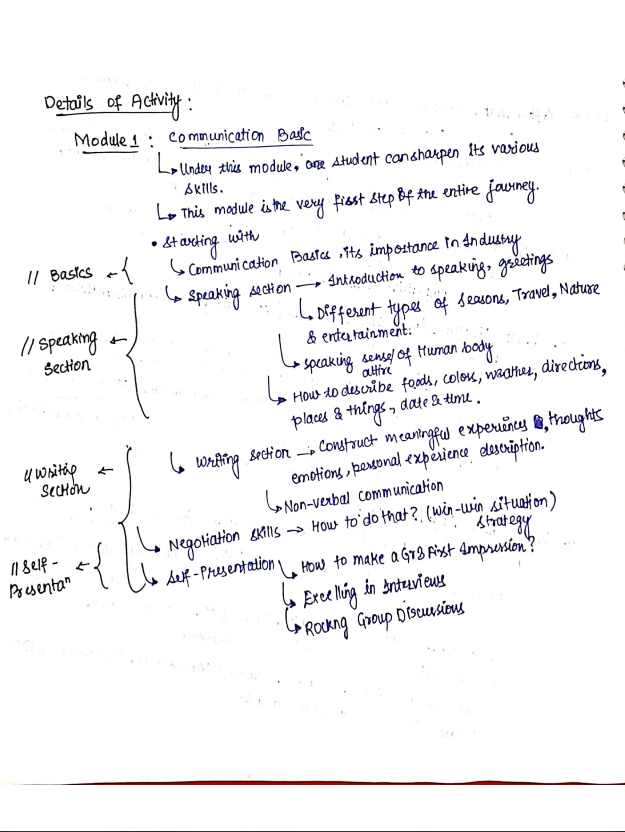 Details of Activity :
Module 1 : Communication Basic
Under this module, one student can sharpen its various
skills.
This module is the very first step of the entire journey.
• Starting with
// Basics
Communication Basics, its importance in Industry
Speaking section → Introduction to speaking, greetings
// Speaking
Section
Different types of seasons, Travel, Nature
& entertainment.
speaking sense/ of Human body
attire
How to describe foods, colors, weather, directions,
places & things, date & time.
// Writing
Section
Writing section → Construct meaningful experiences, thoughts
emotions, personal experience description.
Non-verbal communication
Negotiation skills → How to do that? (win-win situation)
strategy
// Self-
Presentaⁿ
Self-Presentation
How to make a Gr8 First Impression?
Excelling in Interviews
Rockng Group Discussions